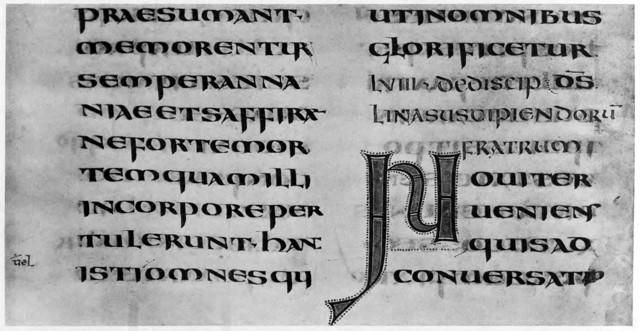 PRAESUMANT·
MEMORENTUR
SEMPER ANNA
NIAE ET SAFFIRA
NE FORTE MOR
TEM QUAM ILLI
IN CORPORE PER
TULERUNT· HAN
uel
ISTI OMNES QUI
UT IN OMNIBUS
GLORIFICETUR
LVIII· De discip D̅S̅
LINA SUSCIPIENDORU̅
FRATRUM
NOUITER
UENIENS
QUIS AD
CONUERSATIO